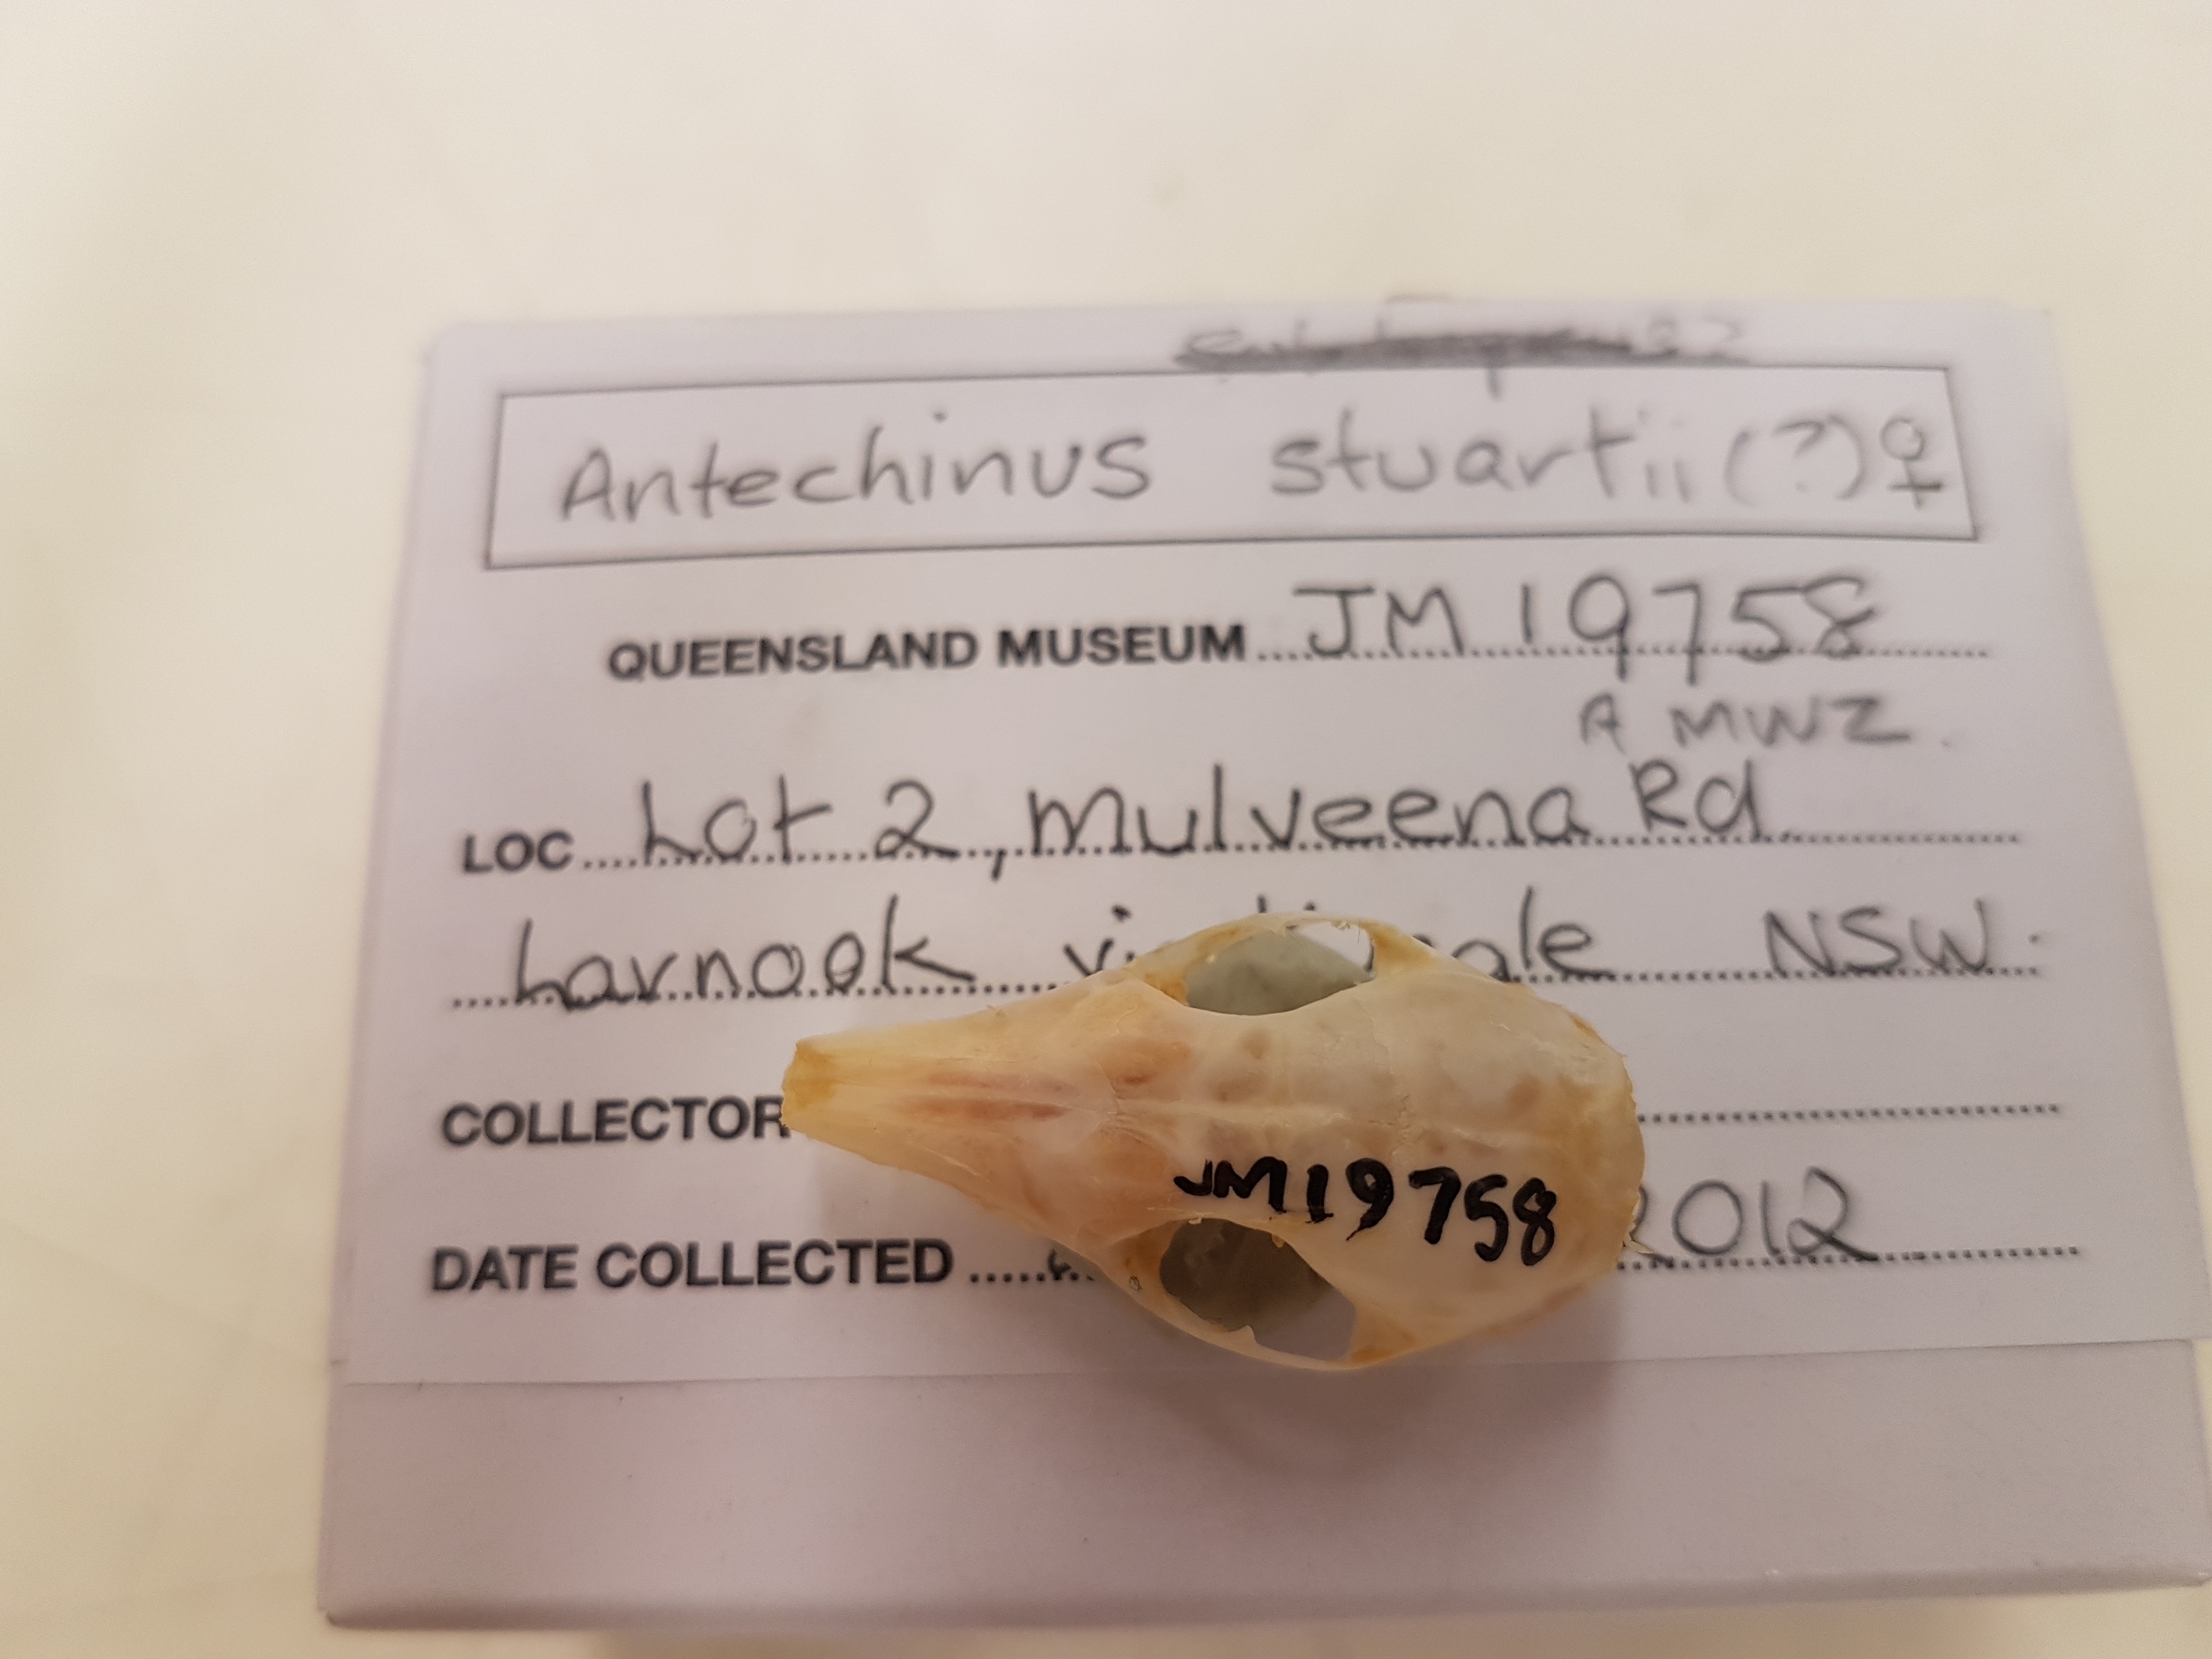 Antechinus stuartii (?) ♀
QUEENSLAND MUSEUM ... JM 19758
A MWZ.
LOC ... Lot 2, Mulveena Rd
Larnook NSW.
COLLECTOR
DATE COLLECTED ... 2012
JM19758